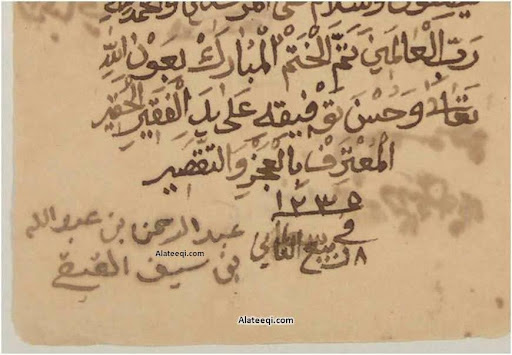 يصفون وسلام على المرسلين والحمد لله
رب العالمين تم الختم المبارك بعون الله
تعالى وحسن توفيقه على يد الفقير الحقير
المعترف بالعجز والتقصير
١٢٣٥
في
١٨ ربيع الثاني
عبد الرحمن بن عبد الله
بن سيف العتيقي
Alateeqi.com
Alateeqi.com